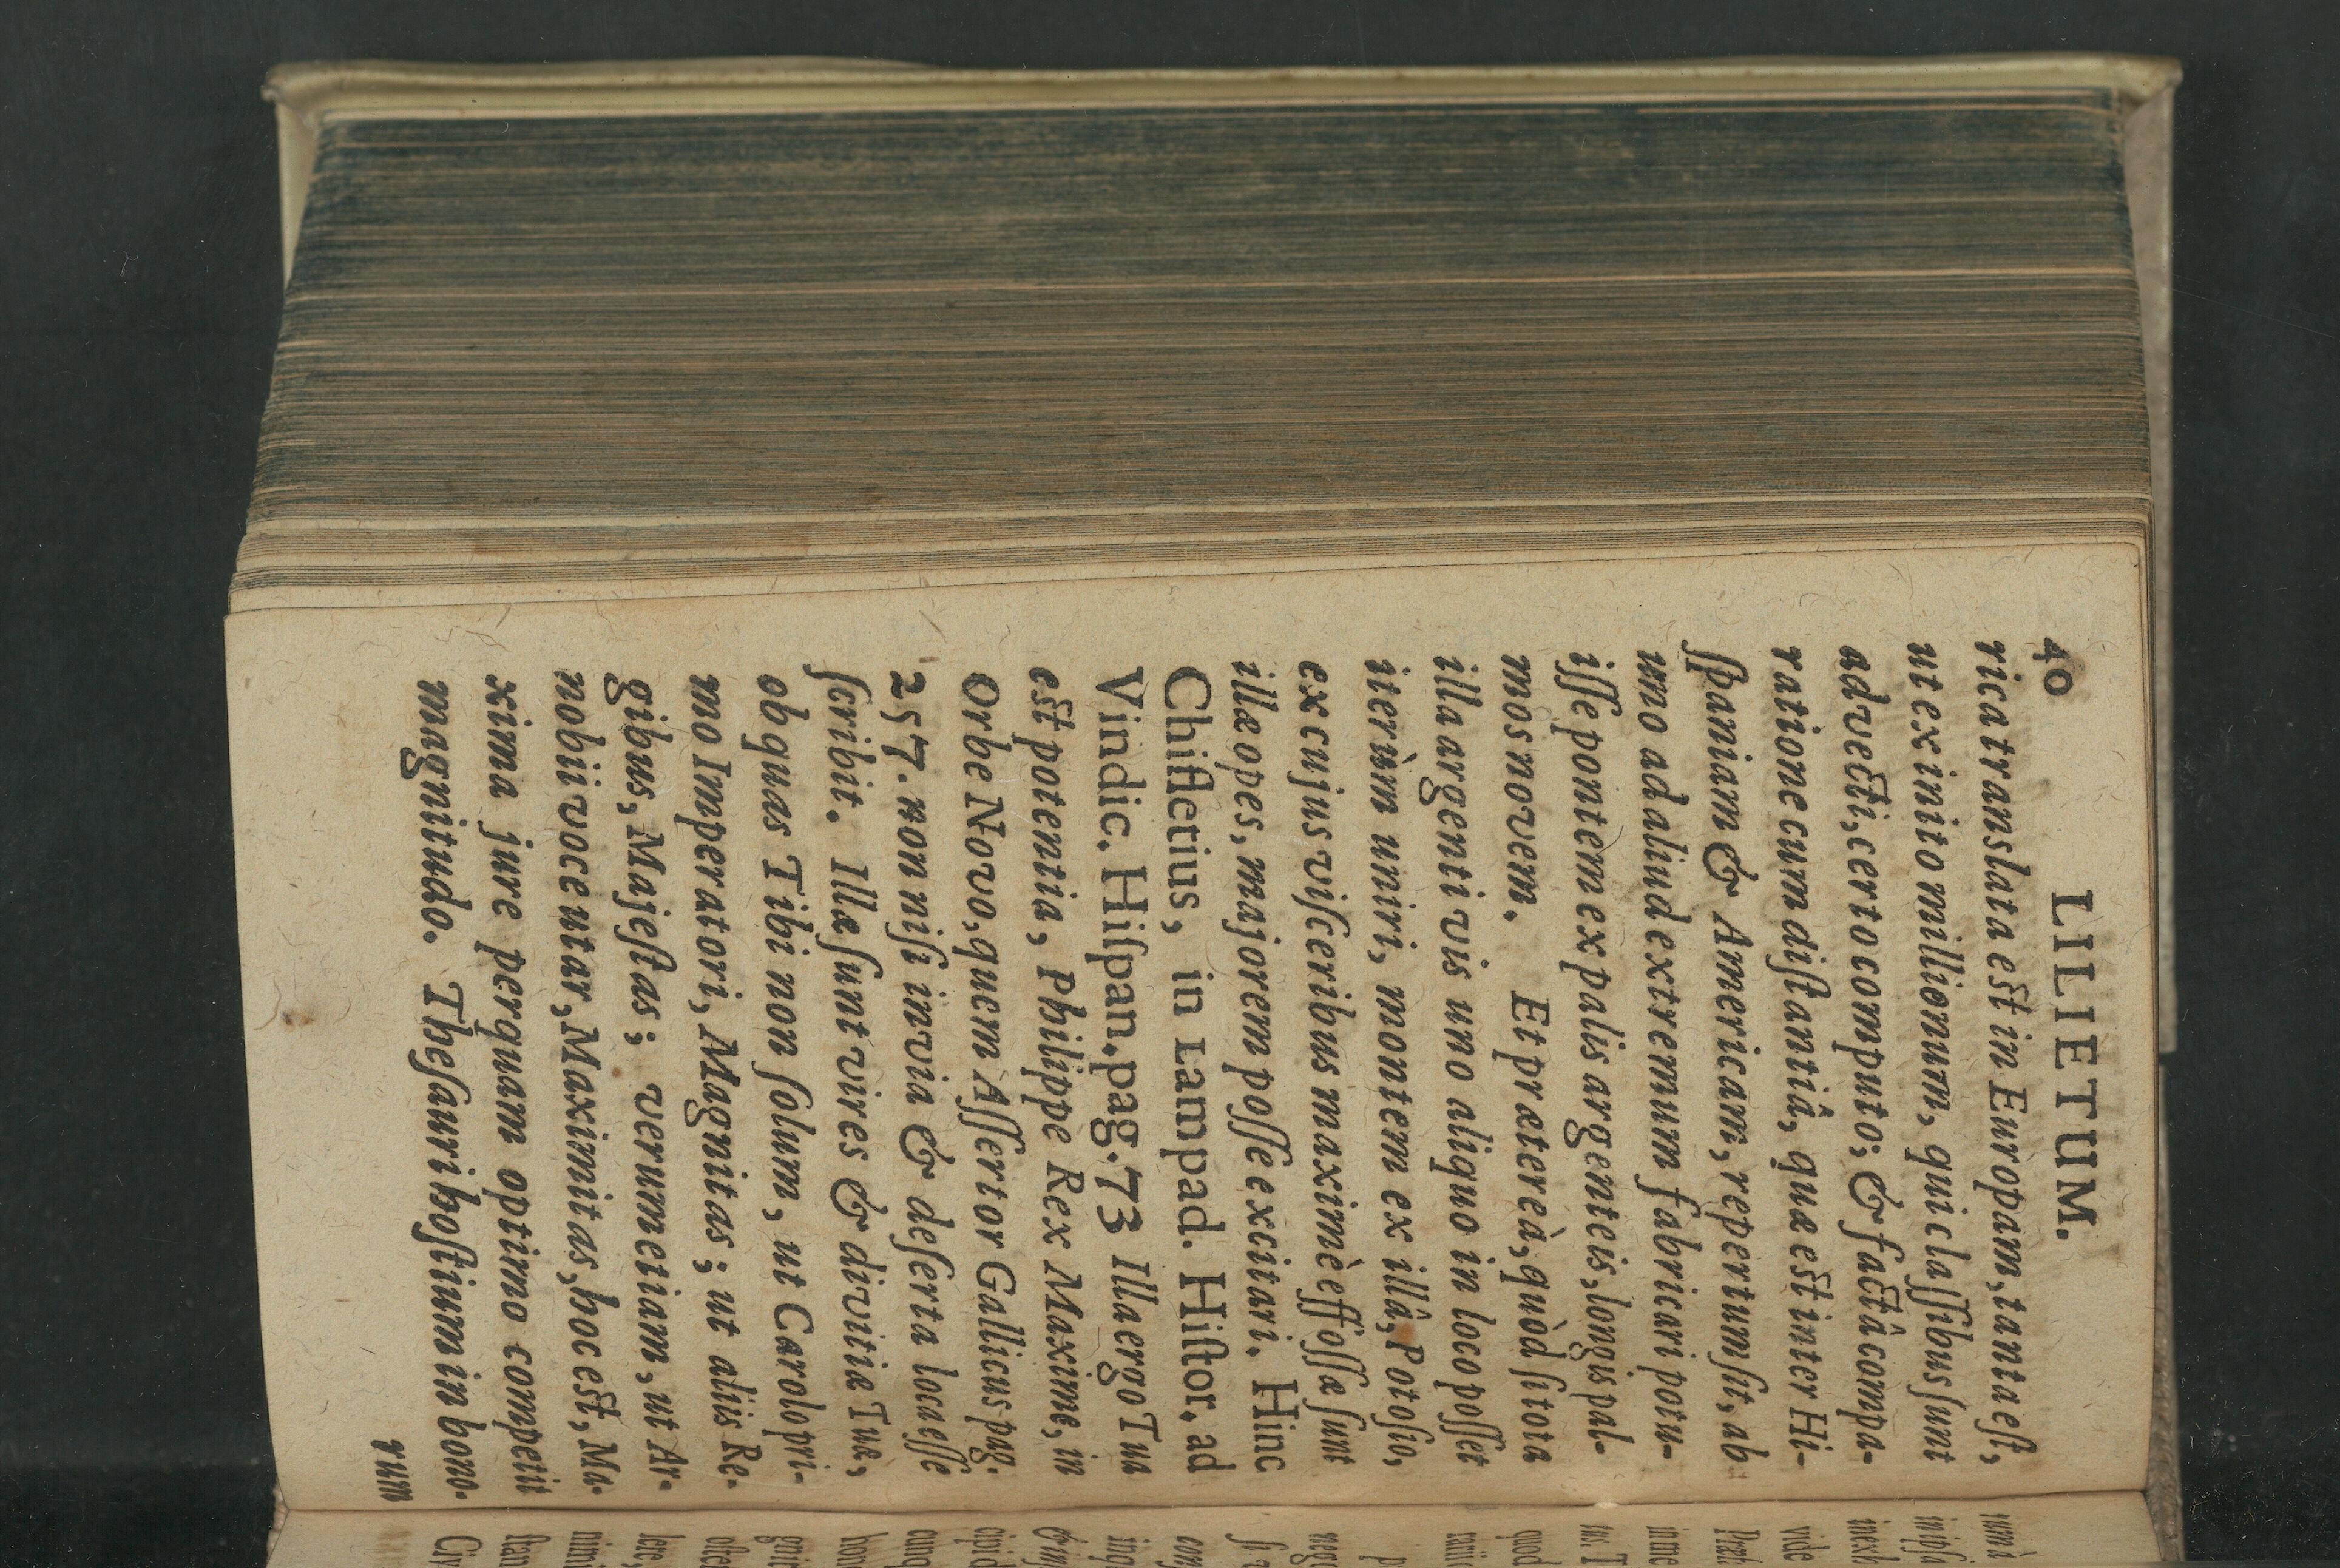 40 LILIETUM.
rica translata est in Europam, tanta eſt,
ut eximito millionum, qui claſſibus ſunt
advecti, certo computo; & factâ compa-
ratione cum diſtantiâ, quæ est inter Hi-
ſpaniam & Americam, repertum ſit, ab
uno ad aliud extremum fabricari potu-
iſſe pontem ex palis argenteis, longis pal-
mos novem. Et prætereà, quòd ſi tota
illa argenti vis uno aliquo in loco poſſet
iterùm uniri, montem ex illâ, Potoſio,
ex cujus viſceribus maximè effoſſa ſunt
illæ opes, majorem poſſe excitari. Hinc
Chifletius, in Lampad. Hiſtor. ad
Vindic. Hiſpan. pag. 73 Illa ergo Tua
est potentia, Philippe Rex Maxime, in
Orbe Novo, quem Aſſertor Gallicus pag.
257. non niſi invia & deſerta loca eſſe
ſcribit. Illæ ſunt vires & divitiæ Tuæ,
ob quas Tibi non ſolum, ut Carolo pri-
mo Imperatori, Magnitas; ut aliis Re-
gibus, Majeſtas; verum etiam, ut Ar-
nobii voce utar, Maximitas, hoc est, Ma-
xima jure perquam optimo competit
magnitudo. Theſauri hoſtium in bono-
rum